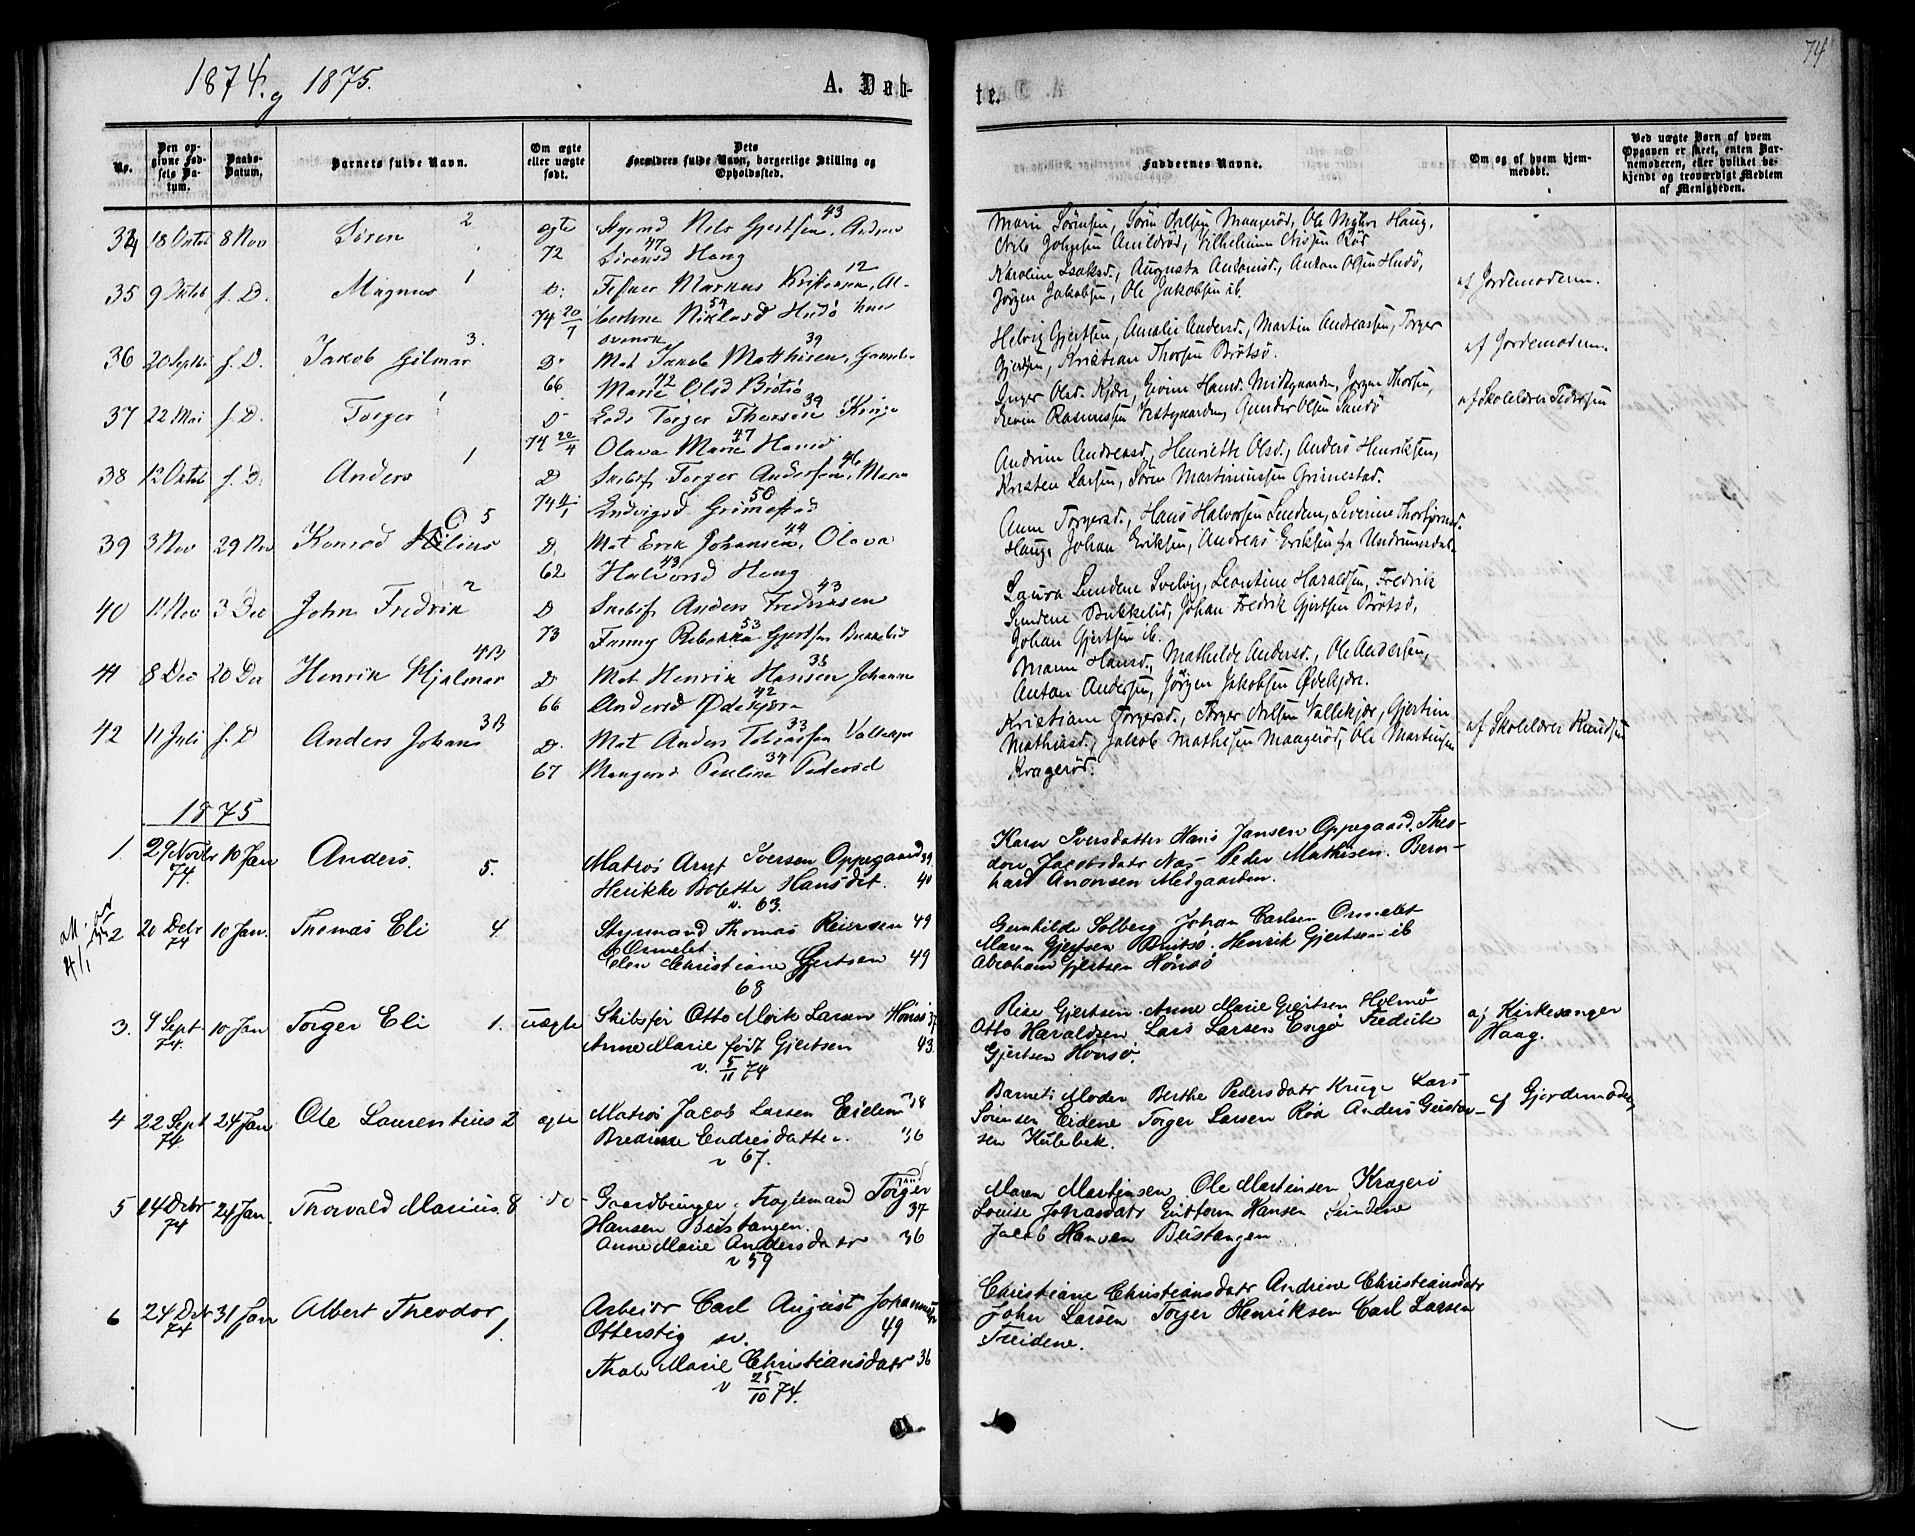 74
1874. og 1875.
A. Døb-
te.
No.
Den op-
givne Fød-
sels Da-
tum.
Daabs-
Datum.
Barnets fulde Navn.
Om ægte
eller uægte
født.
Dets
Forældres fulde Navn, borgerlige Stilling og
Opholdssted.
Faddernes Navne.
Om og af hvem hjem-
medøbt.
Ved uægte Børn af hvem
Opgaven er skeet, enten Bar-
nemoderen, eller hvilket be-
kjendt og troværdigt Medlem
af Menigheden.
34 18 Octob 8 Nov Sören 2 ægte Styrmd Nils Gjertsen 43, Andrea
72 Sörensd 47 Haug
Marie Sörensen, Sören Nilsen Maageröd, Ole Myhre Haug,
Nils Johnsen Amildröd, Vilhelmine Nissen Röd
35 9 Octob f. D. Magnus 1 D. Fisker Markus Kristensen 12, Al-
74 20/7 bertine Niklasd 54 Hudö
Karoline Isaksd., Augusta Antonisd., Anton Olsen Hudö,
Jörgen Jakobsen, Ole Jakobsen ib.
af Jordemoderen.
36 20 Septbr f. D. Jakob Hilmar 3. D. Mat Jakob Mathisen 39,
66 Marie 42 Olsd Brötsö
Helvig Gjertsen, Amalie Andersd., Martin Andreassen, Torger
Gjertsen, Kristian Thorsen Brötsö.
af Jordemoderen.
37 22 Mai f. D. Torger 1 D. Lods Torger Thorsen 39 Kruge
74 20/4 Olava Marie 47 Hansd
Inger Olsd. Kjære, Gevine Hansd. Midtgaarden, Jörgen Thorsen,
Edvin Rasmussen Vestgaarden, Gunder Olsen Sandö
af Skolelærer Pedersen
38 12 Octob f. D. Anders 1 D. Skibsf Torger Andersen 46, Maren
74 Ludvigsd 50 Grimestad
Andrine Andreasd., Henriette Olsd., Anders Henriksen,
Kristen Larsen, Sören Martiniussen Grimestad.
39 3 Nov 29 Nov Konrad Olius 5 D. Mat Erik Johansen 44, Olava
62 Halvorsd 43 Haug
Anne Torgersd., Hans Halvorsen Sundene, Severine Thorbjörnsd.
Haug, Johan Eriksen, Andreas Eriksen fra Undrumsdal.
40 11 Nov 3 Dec John Fredrik 2 D Skibsf Anders Fredriksen 43
73 Fanny Rebekka 53 Gjertsen Buskelid
Laura Sundene Svelvig, Leontine Haraldsen, Fredrik
Sundene Bukkelid, Johan Fredrik Gjertsen Brötsö,
Johan Gjertsen ib.
41 8 Dec 20 Dec Henrik Hjalmar 4 B D. Mat Henrik Hansen 35 Johanne
66 Andersd 42 Ødekjære
Maren Hansd., Mathilde Andersd., Ole Andersen,
Anton Andersen, Jörgen Jakobsen Ødekjære.
42 11 Juli f. D Anders Johans 3 B D. Mat Anders Tobiassen 33 Vallekjær
67 Mangerød Pauline 34 Pedersd
Kristiane Torgersd., Torger Nilsen Vallekjær, Gjertine
Mathiasd., Jakob Mathisen Maageröd, Ole Martinsen
Krageröd.
af Skolelærer Knudsen
1875
1. 29 Novbr 74. 10 Jan Anders. 5. Matros Arnt Iversen Oppegaard 39.
Henikke Bolette Hansdt. 40
v. 63.
Karen Iversdatter Hans Jansen Oppegaard. Theo-
dor Jacobsdatr Nas. Peder Mathisen. Bern-
hard Anonsen Medgaarden.
2 20 Debr 74 10 Jan. Thomas Eli 4. Styrmand Thomas Reiersen 49
Ormelet
Elen Christiane Gjertsen 49
68
Gunhilde Solberg Johan Carlsen Ormelet
Maren Gjertsen Brötsö. Henrik Gjertsen ib
Abraham Gjertsen Hönsö
3. 9 Sept 74. 10 Jan Torger Eli 1. uægte Skibsför Otto Mörk Larsen Hönsö 37
Anne Marie født Gjertsen 43.
v. 5/11 74
Rise Gjertsen. Anne Marie Gjertsen Holmö
Otto Haraldsen Lars Larsen Engö Fredrik
Gjertsen Hönsö.
af Kirkesanger
Haag.
4 22 Sept 74. 24 Jan Ole Laurentius 2 ægte Matros Jacob Larsen Eidene 38
Bredine Endresdatter. 36
v 67.
Barnets Moder Berthe Pedersdatr Kruge Lars
Sörensen Eidene Torger Larsen Röd Anders Gustav-
sen Hulebek.
af Gjordemoder
5 14 Debr 74 24 Jan. Thorvald Marius. 8 do Gaardbruger, Fragtemand Torger
Hansen Bustangen. 37
Anne Marie Andersdatr 36
v 59
Maren Martinsen Ole Martinsen Kragerö
Louise Johansdatr Guttorm Hansen Sundene
Jacob Hansen Bustangen.
6 24 Debr 74 31 Jan Albert Theodor 1. Arbeider Carl August Johannesen
Otterstig sv 49
Thale Marie Christiansdatr 36
v 25/10 74.
Christiane Christiansdatr Andrine Christiansdatr
John Larsen Torger Henriksen Carl Larsen
Treidene.